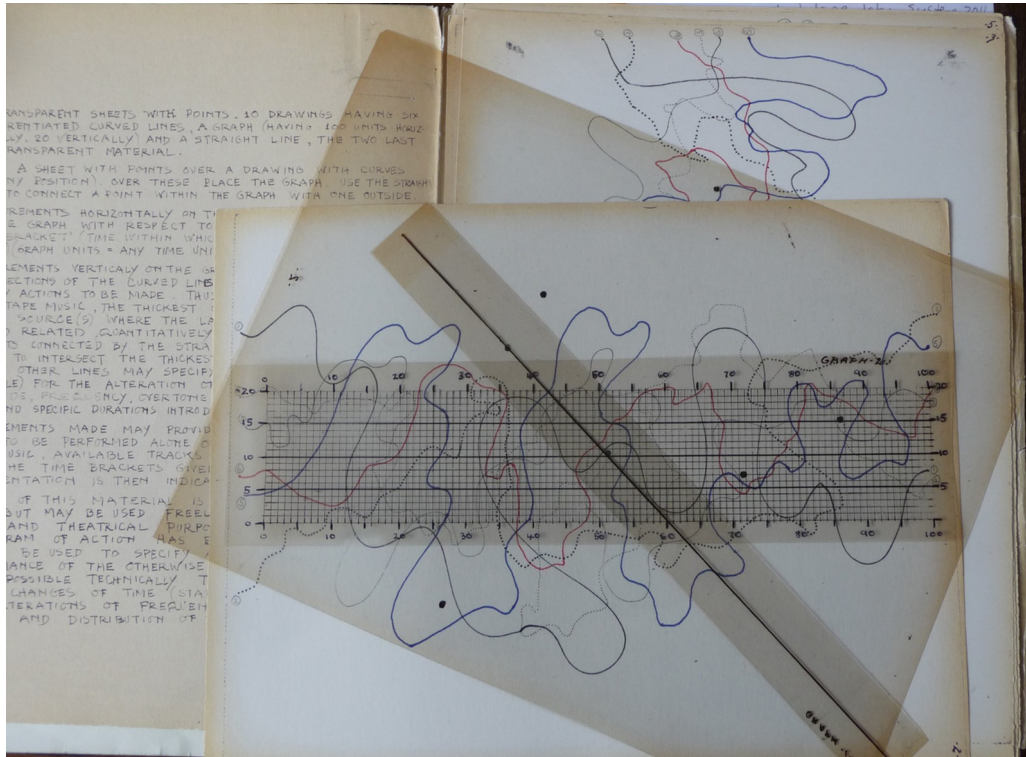 TRANSPARENT SHEETS WITH POINTS. 10 DRAWINGS HAVING SIX
RENTIATED CURVED LINES, A GRAPH (HAVING 100 UNITS HORIZ-
LY, 20 VERTICALLY) AND A STRAIGHT LINE, THE TWO LAST
RANSPARENT MATERIAL.
A SHEET WITH POINTS OVER A DRAWING WITH CURVES
NY POSITION). OVER THESE PLACE THE GRAPH. USE THE STRAIGH
TO CONNECT A POINT WITHIN THE GRAPH WITH ONE OUTSIDE.
REMENTS HORIZONTALLY ON T
E GRAPH WITH RESPECT TO
BRACKET (TIME WITHIN WHIC
(GRAPH UNITS = ANY TIME UNI
EMENTS VERTICALY ON THE GR
ECTIONS OF THE CURVED LINE
ACTIONS TO BE MADE. THU
TAPE MUSIC, THE THICKEST
SOURCE(S) WHERE THE LA
RELATED QUANTITATIVELY
TS CONNECTED BY THE STRA
TO INTERSECT THE THICKES
OTHER LINES MAY SPECIF
LE) FOR THE ALTERATION OF
DE, FREQUENCY, OVERTONE
ND SPECIFIC DURATIONS INTROD
EMENTS MADE MAY PROVID
TO BE PERFORMED ALONE O
USIC. AVAILABLE TRACKS
HE TIME BRACKETS GIVE
ENTATION IS THEN INDICA
OF THIS MATERIAL IS
BUT MAY BE USED FREEL
AND THEATRICAL PURPO
RAM OF ACTION HAS B
BE USED TO SPECIFY
ANCE OF THE OTHERWISE
POSSIBLE TECHNICALLY T
CHANGES OF TIME (STA
TERATIONS OF FREQUEN
AND DISTRIBUTION OF
GRAPH
0 10 20 30 40 50 60 70 80 90 100
20 20
15 15
10 10
5 5
0 0
10 20 30 40 50 60 70 80 90 100
GRAPH